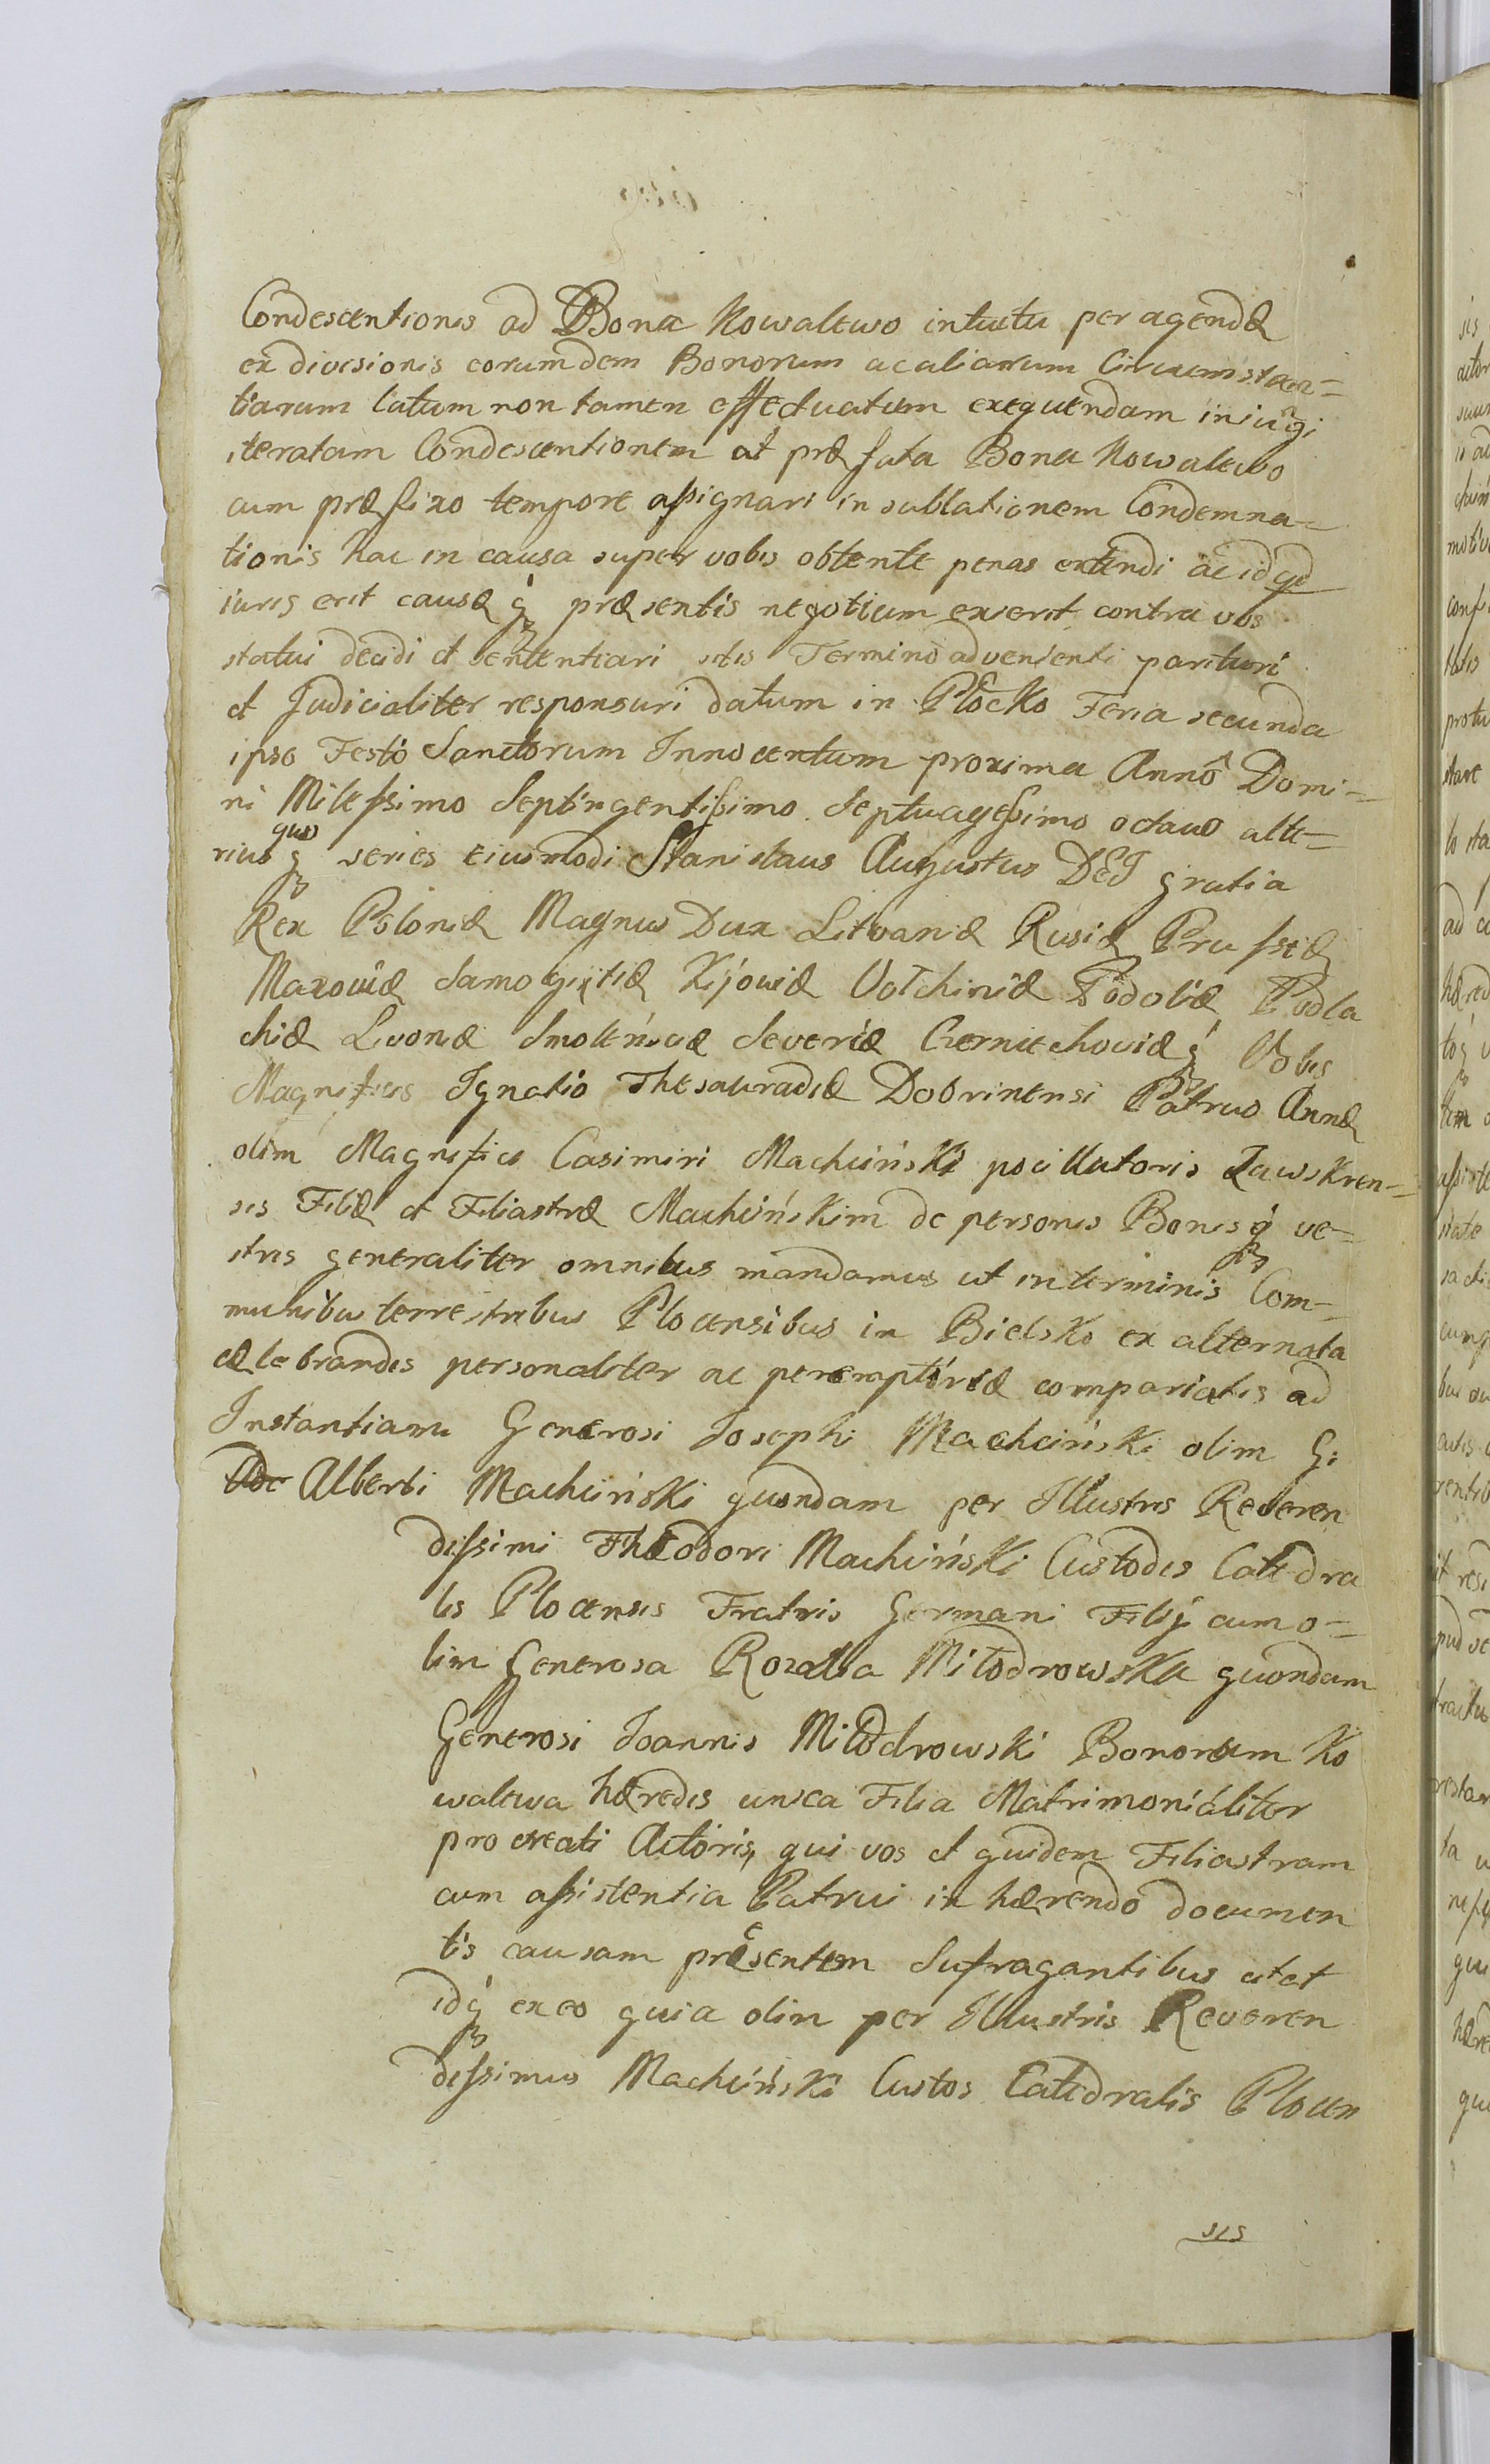 Condescentionis ad Bona Kowalewo intuitu peragendæ
ex divisionis eorumdem Bonorum ac aliarum Circumstan=
tiarum latum non tamen effectuatum exequendam iniungi
iteratam Condescentionem at præfata Bona Kowalewo
cum præfixo tempore assignari in sublationem Condemna=
tionis hac in causa super vobis obtente penas extendi ac id qd
iuris erit causæ q₃ præsentis negotium exierit contra vos
statui decidi et sententiari sitis Termino advenienti parituri
et Judicialiter responsuri datum in Płocko Feria secunda
ipso Festo Sanctorum Innocentum proxima Annô Domi=
ni Milessimo Septingentissimo Septuagessimo octavo alte=
rius quo q₃ series eiusmodi Stanislaus Augustus DEI gratia
Rex Poloniæ Magnus Dux Litvaniæ Rusiæ Prussiæ
Mazowiæ Samogijtiæ Kijowiæ Volchiniæ Podoliæ Podla
chiæ Livonæ Smolensciæ Severiæ Czerniechoviæ q₃ Vobis
Magnificis Ignatio Thesauradiæ Dobrinensi Patruo Annæ
olim Magnifici Casimiri Machcinski pocillatoris Zawskren=
sis Filiæ et Filiastræ Machcińskim de personis Bonis q₃ ve=
stris generaliter omnibus mandamus ut in terminis Com=
munibus terrestribus Plocensibus in Bielsko ex alternata
cælebrandis personaliter ac peremptóriæ compariatis ad
Instantiam Generosi Josephi Machciński olim G:
Adc Alberti Machciński quondam per Illustris Reveren
dissimi Thæodori Machciński Custodis Catedra
lis Plocensis Fratris Germani Filij cum o=
lim Generosa Rozalia Miłodrowska quondam
Generosi Joannis Miłodrowski Bonorum Ko
walewa hæredis unica Filia Matrimoniáliter
procreati Actoris, qui vos et quidem Filiastram
cum assistentia Patrui in hærendo documen
tis causam præsentem Sufragantibus citat
idq₃ ex eo quia olim per Illustris Reveren
dissimus Machciński Custos Catedralis Plocen
sis